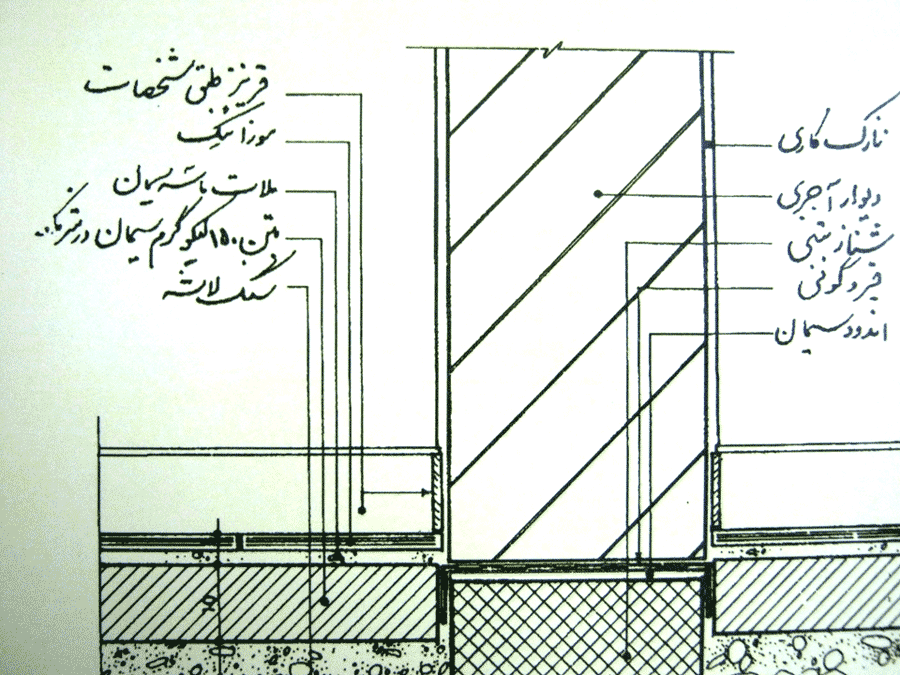 قرنیز طبق مشخصات
موزائیک
ملات ماسه سیمان
بتن ۱۵۰ کیلوگرم سیمان در مترمکعب
سنگ لاشه
نازک کاری
دیوار آجری
شناژ بتنی
قیر و گونی
اندود سیمان